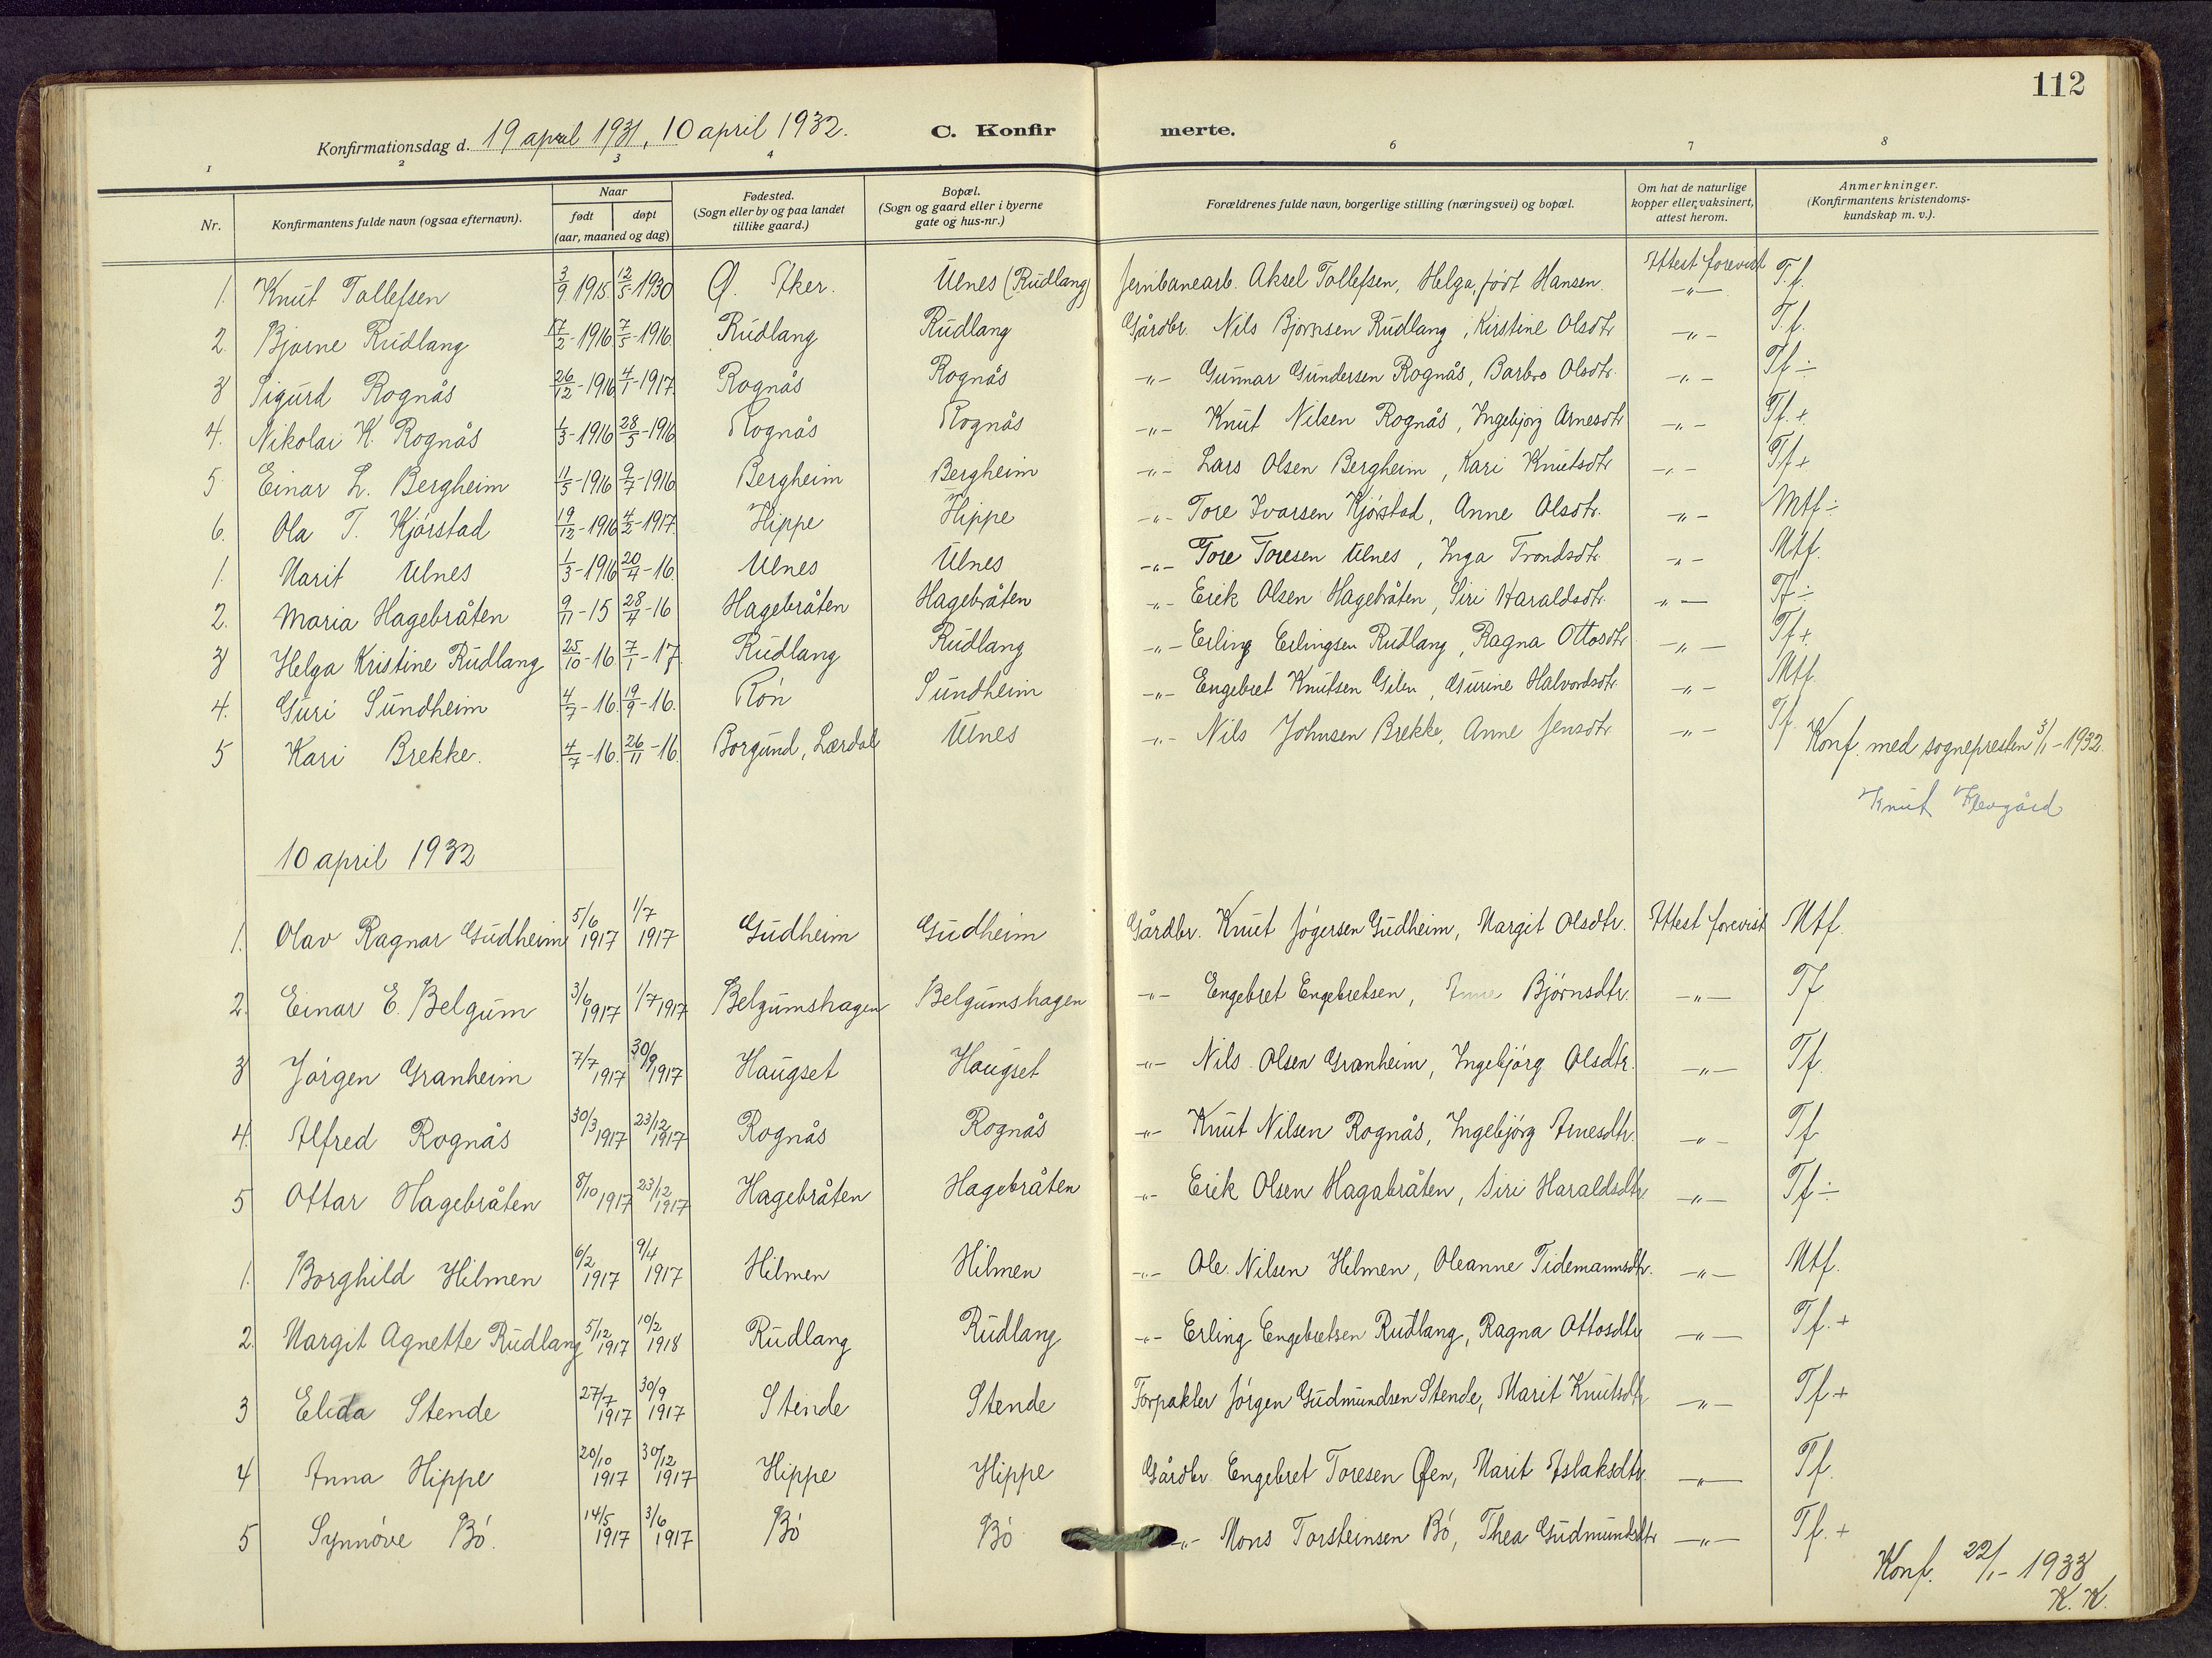 112
Konfirmationsdag d. 19 april 1931, 10 april 1932. C. Konfirmerte.
1 2 3 4 6 7 8
Nr. Konfirmantens fulde navn (ogsaa efternavn). Naar født døpt (aar, maaned og dag) Fødested. (Sogn eller by og paa landet tillike gaard.) Bopæl. (Sogn og gaard eller i byerne gate og hus-nr.) Forældrenes fulde navn, borgerlige stilling (næringsvei) og bopæl. Om hat de naturlige kopper eller vaksinert, attest herom. Anmerkninger. (Konfirmantens kristendomskundskap m. v.).
1. Knut Tollefsen 3/9 1915 12/5-1930 Ø. Aker. Ulnes (Rudlang) Jernbanearb. Aksel Tollefsen, Helga, født Hansen. Attest forevist -"- T.f.
2. Bjarne Rudlang 17/2-1916 7/5-1916 Rudlang Rudlang Gårdbr. Nils Bjørnsen Rudlang, Kirstine Olsdtr -"- T.f.
3 Sigurd Rognås 26/12-1916 4/1-1917 Rognås Rognås -"- Gunnar Gundersen Rognås, Barbro Olsdtr. -"- Tf÷
4. Nikolai K. Rognås 1/3-1916 28/5-1916 Rognås Rognås -"- Knut Nilsen Rognås, Ingebjørg Arnesdtr -"- Tf.+
5 Einar L. Bergheim 11/5-1916 9/7-1916 Bergheim Bergheim -"- Lars Olsen Bergheim, Kari Knutsdtr -"- Tf+
6. Ola T. Kjørstad 19/12-1916 4/2-1917 Hippe Hippe -"- Tore Ivarsen Kjørstad, Anne Olsdtr. -"- Mtf÷
1. Marit Ulnes 1/3-1916 20/4-16. Ulnes Ulnes -"- Tore Toresen Ulnes, Inga Trondsdtr -"- Mtf.
2. Maria Hagebråten 9/11-15 28/4-16 Hagebråten Hagebråten -"- Erik Olsen Hagebråten, Siri Haraldsdtr. -"- Tf÷
3 Helga Kristine Rudlang 25/10-16 7/1-17 Rudlang Rudlang -"- Erling Erlingsen Rudlang, Ragna Ottosdtr -"- Tf+
4. Guri Sundheim 4/7-16. 19/9-16. Røn Sundheim -"- Engebret Knutsen Gilen, Gurine Halvordsdtr. -"- Mtf.
5 Kari Brekke. 4/7-16. 26/11-16. Borgund, Lærdal Ulnes -"- Nils Johnsen Brekke, Anne Jensdtr -"- Tf.
Konf. med sognepresten 3/1-1932.
Knut
10 april 1932
1. Olav Ragnar Gudheim 5/6 1917 1/7 1917 Gudheim Gudheim Gårdbr. Knut Jøgersen Gudheim, Margit Olsdtr. Attest forevist Mtf.
2. Einar E. Belgum 3/6 1917 1/7 1917 Belgumshagen Belgumshagen -"- Engebret Engebretsen, Anne Bjørnsdtr. -"- Tf
3 Jørgen Granheim 7/7 1917 30/9 1917 Haugset Haugset -"- Nils Olsen Granheim, Ingebjørg Olsdtr. -"- Tf.
4. Alfred Rognås 30/3 1917 23/12 1917 Rognås Rognås -"- Knut Nilsen Rognås, Ingebjørg Arnesdtr. -"- Tf
5 Ottar Hagebråten 8/10 1917 23/12 1917 Hagebråten Hagebråten -"- Erik Olsen Hagabråten, Siri Haraldsdtr -"- Tf÷
1. Borghild Hilmen 6/2 1917 9/4 1917 Hilmen Hilmen -"- Ole Nilsen Hilmen, Oleanne Tidemannsdtr. -"- Mtf.
2. Margit Agnette Rudlang 5/12 1917 10/2 1918 Rudlang Rudlang -"- Erling Engebretsen Rudlang, Ragna Ottosdtr -"- Tf.+
3 Elida Stende 27/7 1917 30/9 1917 Stende Stende Forpakter Jørgen Gudmundsen Stende, Marit Knutsdtr -"- Tf+
4 Anna Hippe 20/10 1917 30/12 1917 Hippe Hippe Gårdbr. Engebret Toresen Øen, Marit Aslaksdtr. -"- Tf.
5 Synnøve Bø. 14/5 1917 3/6 1917 Bø Bø -"- Mons Torsteinsen Bø, Thea Gudmundsdtr -"- Tf.+
Konf. 22/1-1933
K. K.